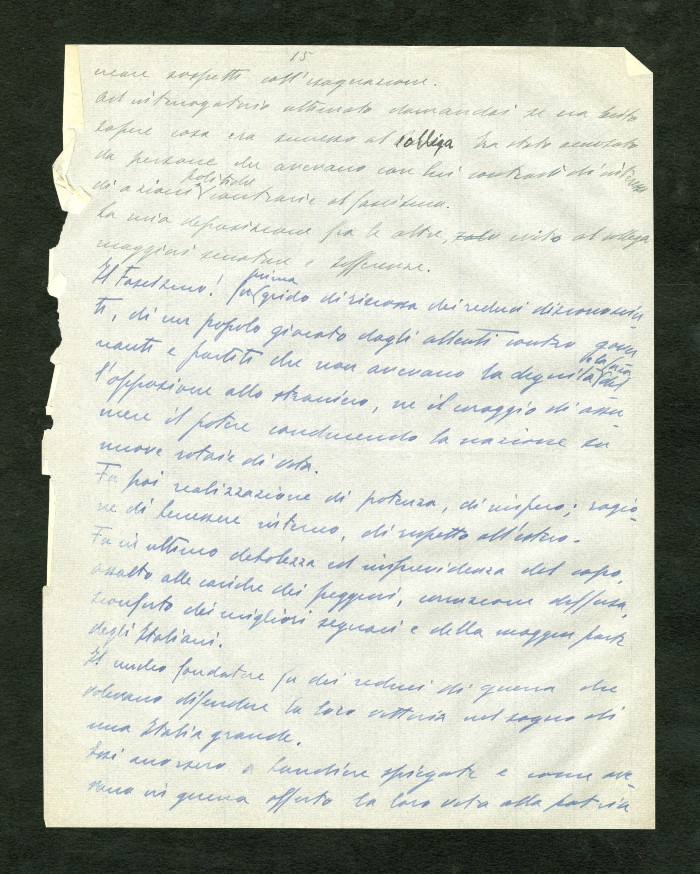 15
neare sospetti coll'esagerazione.
Ad interrogatorio ultimato domandai se era tutto
sapere cosa era successo al collega. Era stato accusato
da persone che avevano con lui contrasti di interesse
politiche
di azioni contrarie al fascismo.
La mia deposizione fra le altre, valse evitò al collega
maggiori seccature e sofferenze.
Il Fascismo! Fu prima
grido di riscossa dei reduci disconosciu
ti, di un popolo giocato dagli alleati contro gover
nanti e partiti che non avevano la dignità del
l'opposizione allo straniero, ne il coraggio di assu
mere il potere conducendo la nazione su
nuove rotaie di vita.
Fu poi realizzazione di potenza, di impero; ragio
ne di benessere interno, di rispetto all'estero.
Fu in ultimo debolezza ed imprevidenza del capo,
assalto alle cariche dei peggiori, corruzione diffusa,
sconforto dei migliori seguaci e della maggior parte
degli Italiani.
Il nucleo fondatore fu dei reduci di guerra che
volevano difendere la loro vittoria nel sogno di
una Italia grande.
Essi accorsero a bandiere spiegate e come ave
vano in guerra offerto la loro vita alla patria